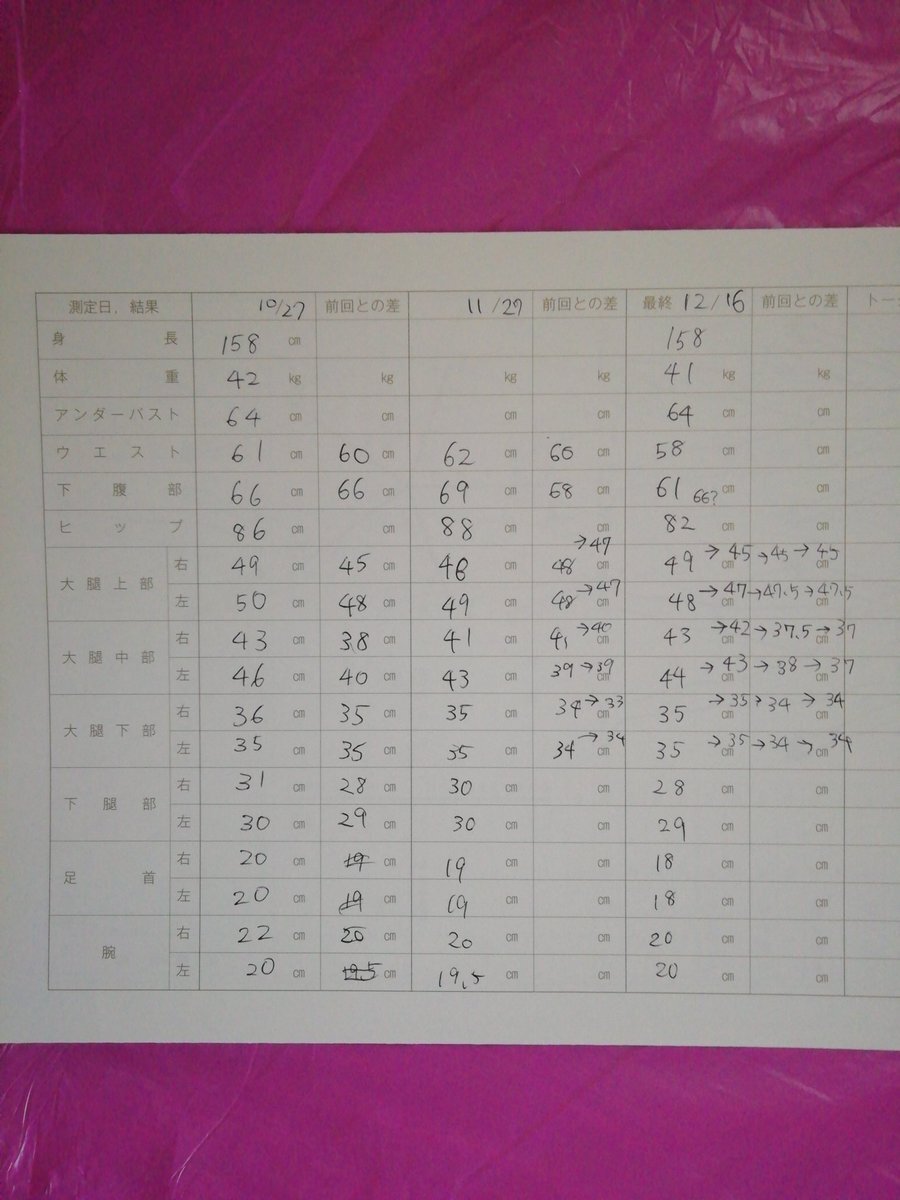 測定日、結果 10/27 前回との差 11/27 前回との差 最終 12/16 前回との差 トー
身長 158 cm 158
体重 42 kg kg kg kg 41 kg kg
アンダーバスト 64 cm cm cm cm 64 cm cm
ウエスト 61 cm 60 cm 62 cm 60 cm 58 cm cm
下腹部 66 cm 66 cm 69 cm 68 cm 61 66? cm cm
ヒップ 86 cm cm 88 cm cm 82 cm cm
大腿上部 右 49 cm 45 cm 46 cm 48 →47 cm 49 →45 cm →45 →45 cm
左 50 cm 48 cm 49 cm 48 →47 cm 48 →47 cm →47.5 →47.5 cm
大腿中部 右 43 cm 38 cm 41 cm 41 →40 cm 43 →42 cm →37.5 →37 cm
左 46 cm 40 cm 43 cm 39 →39 cm 44 →43 cm →38 →37 cm
大腿下部 右 36 cm 35 cm 35 cm 34 →33 cm 35 →35 cm →34 →34 cm
左 35 cm 35 cm 35 cm 34 →34 cm 35 →35 cm →34 →34 cm
下腿部 右 31 cm 28 cm 30 cm cm 28 cm cm
左 30 cm 29 cm 30 cm cm 29 cm cm
足首 右 20 cm 19 cm 19 cm cm 18 cm cm
左 20 cm 19 cm 19 cm cm 18 cm cm
腕 右 22 cm 20 cm 20 cm cm 20 cm cm
左 20 cm 19.5 cm 19.5 cm cm 20 cm cm